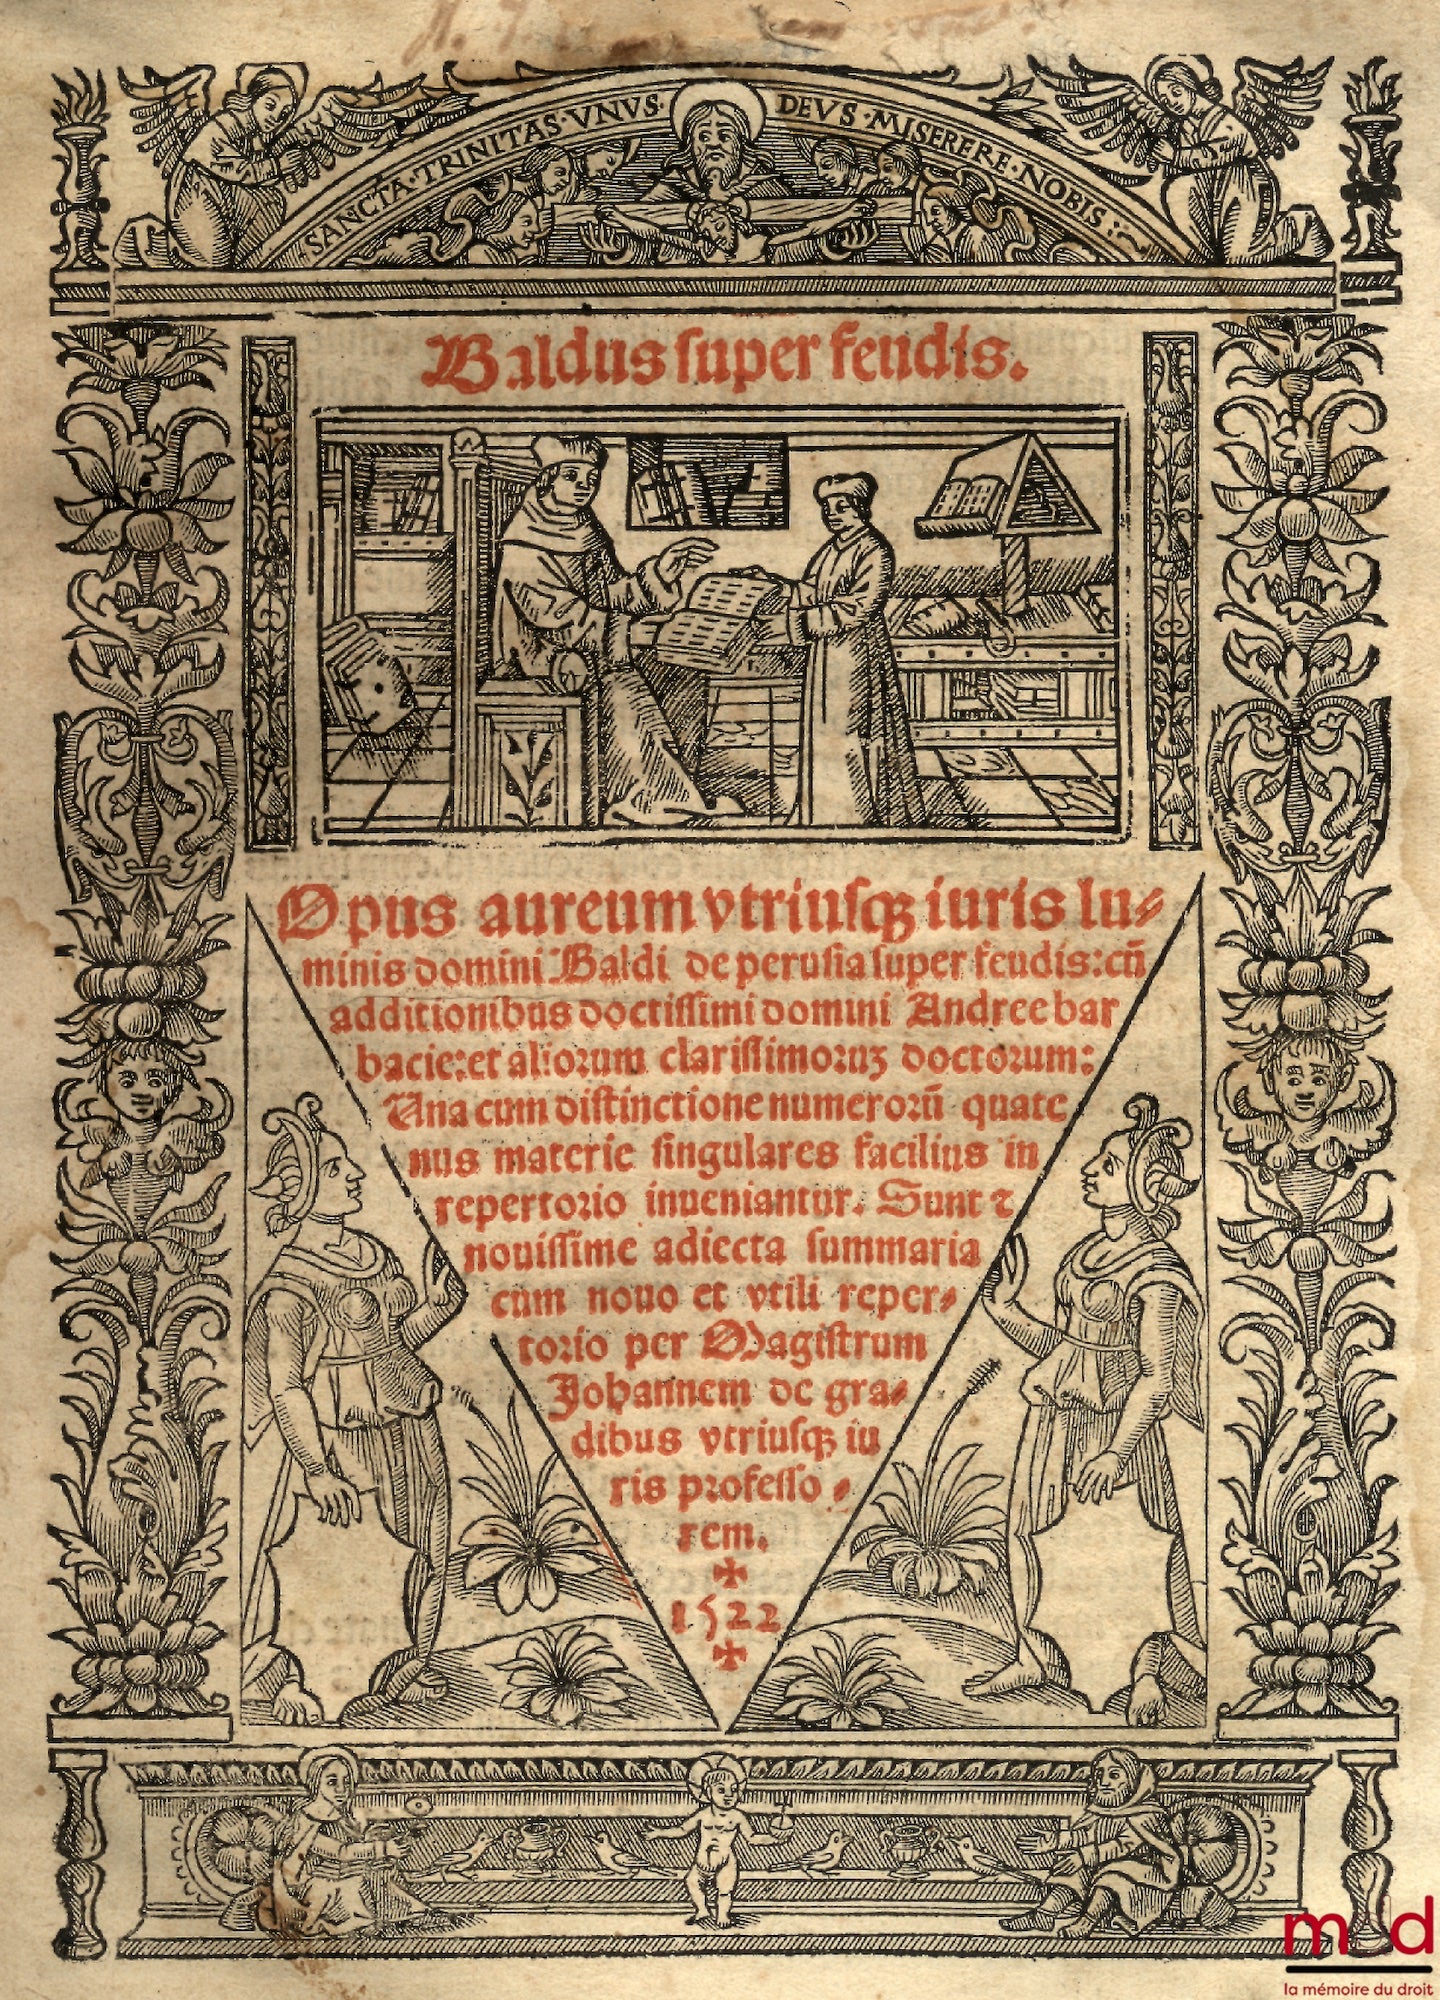 SANCTA·TRINITAS·VNVS· DEVS·MISERERE·NOBIS
Baldus super feudis.
Opus aureum vtriusqꝫ iuris lu⸗
minis domini Baldi de perusia super feudis: cū
additionibus doctissimi domini Andree bar
bacie: et aliorum clarissimoruꝫ doctorum:
Una cum distinctione numerorū quate
nus materie singulares facilius in
repertorio inueniantur. Sunt ⁊
nouissime adiecta summaria
cum nouo et vtili reper⸗
torio per Magistrum
Johannem de gra⸗
dibus vtriusqꝫ iu
ris professo⸗
rem.
✠
1522
✠
m d
la mémoire du droit